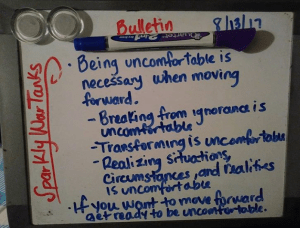 Bulletin 8/13/17
Sparkly War Tanks
• Being uncomfortable is
necessary when moving
forward.
- Breaking from ignorance is
uncomfortable
- Transforming is uncomfortable
- Realizing situations,
circumstances, and realities
is uncomfortable
• If you want to move forward
get ready to be uncomfortable.